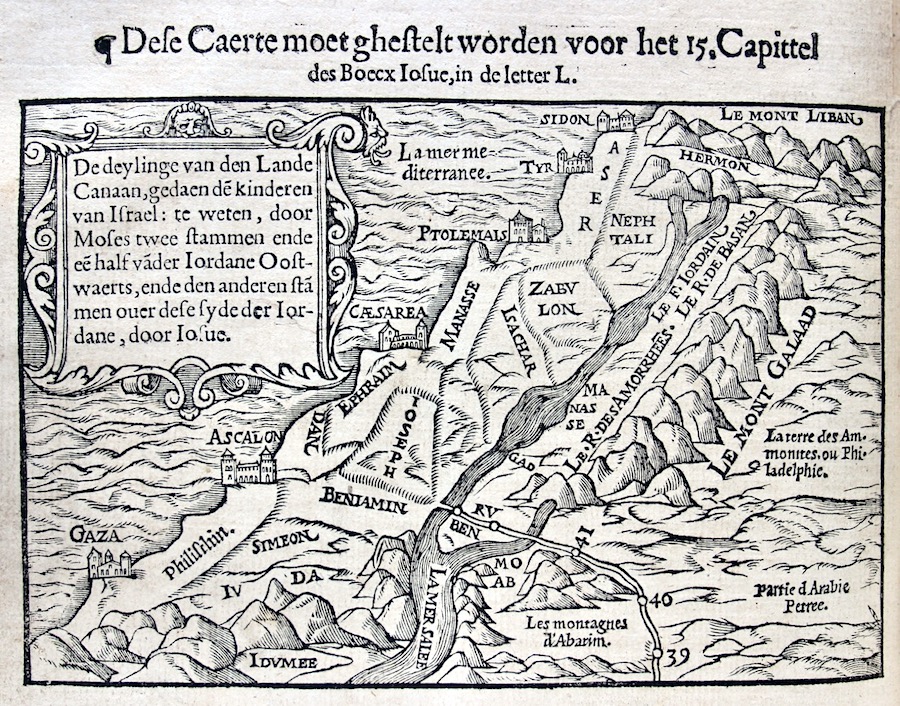 ¶ Dese Caerte moet ghestelt worden voor het 15. Capittel
des Boecx Iosue, in de letter L.
De deylinge van den Lande
Canaan, gedaen dē kinderen
van Israel: te weten, door
Moses twee stammen ende
eē half vāder Iordane Oost-
waerts, ende den anderen stā
men ouer dese syde der Ior-
dane, door Iosue.
La mer me-
diterranee.
SIDON
TYR
PTOLEMAIS
CÆSAREA
ASCALON
GAZA
LE MONT LIBAN
HERMON
ASER
NEPH
TALI
ZABV
LON
ISACHAR
MANASSE
EPHRAIM
DAN
IOSEPH
BENIAMIN
Philisthin.
SIMEON
IV DA
IDVMEE
LE F. IORDAIN
LE R. DE BASAN
LE R. DES AMORRHEES.
LE MONT GALAAD
MA
NAS
SE
GAD
RV
BEN
MO
AB
LA MER SALEE
La terre des Am-
monites. ou Phi-
ladelphie.
Partie d'Arabie
Petree.
Les montagnes
d'Abarim.
41
40
39